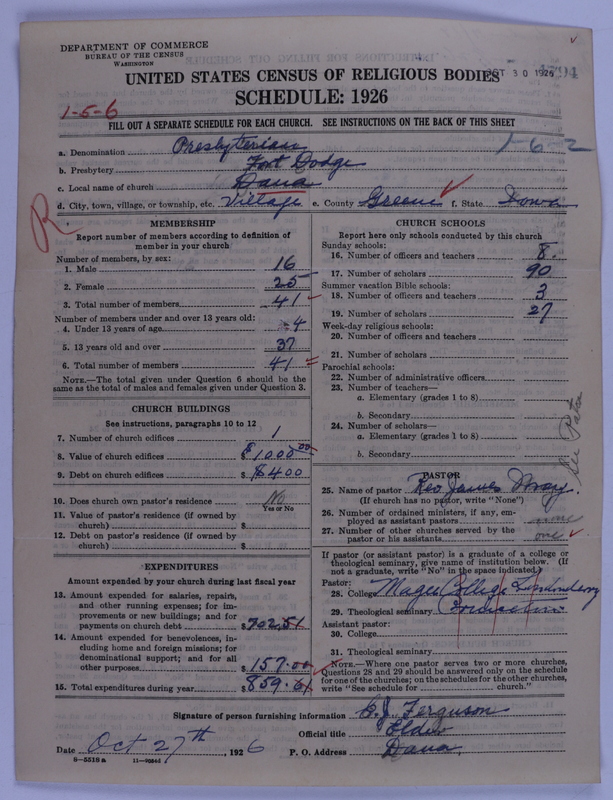 DEPARTMENT OF COMMERCE
BUREAU OF THE CENSUS
WASHINGTON
OCT 30 1926
UNITED STATES CENSUS OF RELIGIOUS BODIES
SCHEDULE: 1926
1-5-6
FILL OUT A SEPARATE SCHEDULE FOR EACH CHURCH. SEE INSTRUCTIONS ON THE BACK OF THIS SHEET
1-6-2
a. Denomination Presbyterian
b. Presbytery Fort Dodge
c. Local name of church Dana
d. City, town, village, or township, etc. Village e. County Greene f. State Iowa
R
MEMBERSHIP
Report number of members according to definition of
member in your church
Number of members, by sex:
1. Male 16
2. Female 25
3. Total number of members 41
Number of members under and over 13 years old:
4. Under 13 years of age 4
5. 13 years old and over 37
6. Total number of members 41
NOTE.—The total given under Question 6 should be the
same as the total of males and females given under Question 3.
CHURCH BUILDINGS
See instructions, paragraphs 10 to 12
7. Number of church edifices 1
8. Value of church edifices $ 1000.00
9. Debt on church edifices $ $400
10. Does church own pastor's residence No
Yes or No
11. Value of pastor's residence (if owned by
church) $
12. Debt on pastor's residence (if owned by
church) $
EXPENDITURES
Amount expended by your church during last fiscal year
13. Amount expended for salaries, repairs,
and other running expenses; for im-
provements or new buildings; and for
payments on church debt $702.51
14. Amount expended for benevolences, in-
cluding home and foreign missions; for
denominational support; and for all
other purposes $157.00
15. Total expenditures during year $859.61
CHURCH SCHOOLS
Report here only schools conducted by this church
Sunday schools:
16. Number of officers and teachers 8.
17. Number of scholars 90
Summer vacation Bible schools:
18. Number of officers and teachers 3
19. Number of scholars 27
Week-day religious schools:
20. Number of officers and teachers
21. Number of scholars
Parochial schools:
22. Number of administrative officers
23. Number of teachers—
a. Elementary (grades 1 to 8)
b. Secondary
24. Number of scholars—
a. Elementary (grades 1 to 8)
b. Secondary
PASTOR
25. Name of pastor Rev James Wray.
(If church has no pastor, write "None")
26. Number of ordained ministers, if any, em-
ployed as assistant pastors none
27. Number of other churches served by the
pastor or his assistants one
If pastor (or assistant pastor) is a graduate of a college or
theological seminary, give name of institution below. (If
not a graduate, write "No" in the space indicated.)
Pastor:
28. College Magee College Londonderry
29. Theological seminary
Assistant pastor:
30. College
31. Theological seminary
NOTE.—Where one pastor serves two or more churches,
Questions 28 and 29 should be answered only on the schedule
for one of the churches; on the schedules for the other churches,
write "See schedule for church."
Signature of person furnishing information Ferguson
Official title Elder
Date Oct 27th, 1926 P. O. Address Dana
8-5518a